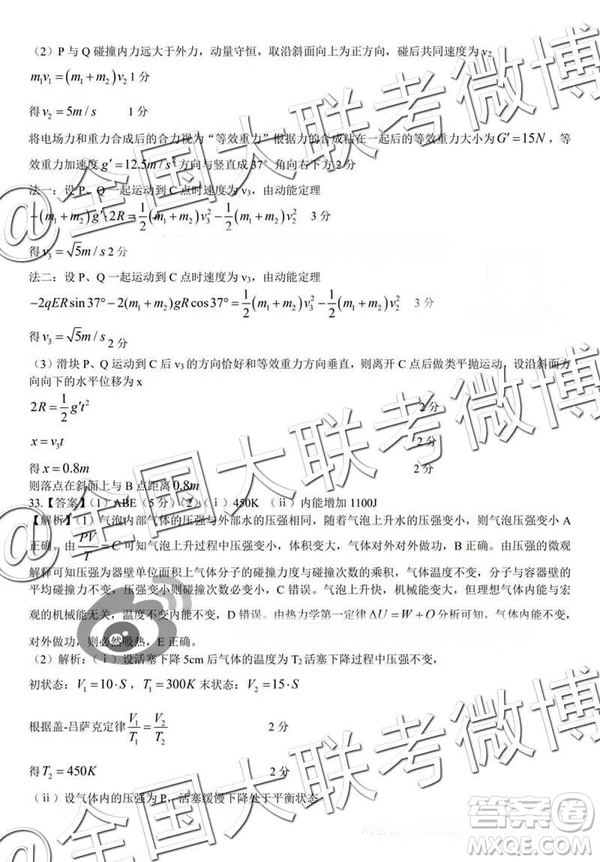 （2）P 与 Q 碰撞内力远大于外力，动量守恒，取沿斜面向上为正方向，碰后共同速度为 v₂
m₁v₁=(m₁+m₂)v₂ 1分
得 v₂=5m/s 1分
将电场力和重力合成后的合力视为“等效重力”根据力的合成粘在一起后的等效重力大小为 G′=15N，等
效重力加速度 g′=12.5m/s² 方向与竖直成 37° 角向右下方 2 分
法一：设 P、Q 一起运动到 C 点时速度为 v₃，由动能定理
-(m₁+m₂)g′·2R=1/2(m₁+m₂)v₃²-1/2(m₁+m₂)v₂² 3分
得 v₃=√5m/s 2分
法二：设 P、Q 一起运动到 C 点时速度为 v₃，由动能定理
-2qER sin37°-2(m₁+m₂)gR cos37°=1/2(m₁+m₂)v₃²-1/2(m₁+m₂)v₂² 3分
得 v₃=√5m/s 2分
（3）滑块 P、Q 运动到 C 后 v₃ 的方向恰好和等效重力方向垂直，则离开 C 做类平抛运动，设沿斜面方
向向下的水平位移为 x
2R=1/2g′t² 2分
x=v₃t
得 x=0.8m 2分
则落点在斜面上与 B 点距离 0.8m
33.【答案】（1）ABE（5 分）（2）（ⅰ）450K （ⅱ）内能增加 1100J
【解析】（1）气泡内部气体的压强与外部水的压强相同，随着气泡上升水的压强变小，则气泡压强变小，A
正确。由PV/T=C 可知气泡上升过程中压强变小，体积变大，气体对外对外做功，B 正确。由压强的微观
解释可知压强为器壁单位面积上气体分子的碰撞力度与碰撞次数的乘积，气体温度不变，分子与容器壁的
平均碰撞力度不变，压强变小则碰撞次数必变小，C 错误。气泡上升机械能变大，但理想气体内能变与宏
观的机械能无关，温度不变内能不变，D 错误。由热力学第一定律 ΔU=W+Q 分析可知，内能不变，气体
对外做功，则必然吸热，E 正确。
（2）解析：（ⅰ）设活塞下降 5cm 后气体的温度为 T₂ 活塞下降过程中压强不变，
初状态：V₁=10·S，T₁=300K 末状态：V₂=15·S
根据盖-吕萨克定律 V₁/T₁=V₂/T₂ 2分
得 T₂=450K 2分
（ⅱ）设气体内的压强为 P，活塞缓慢下降处于平衡状态
@全国大联考微博
@全国大联考微博
@全国大联考微博
答案圈
MXQE.COM